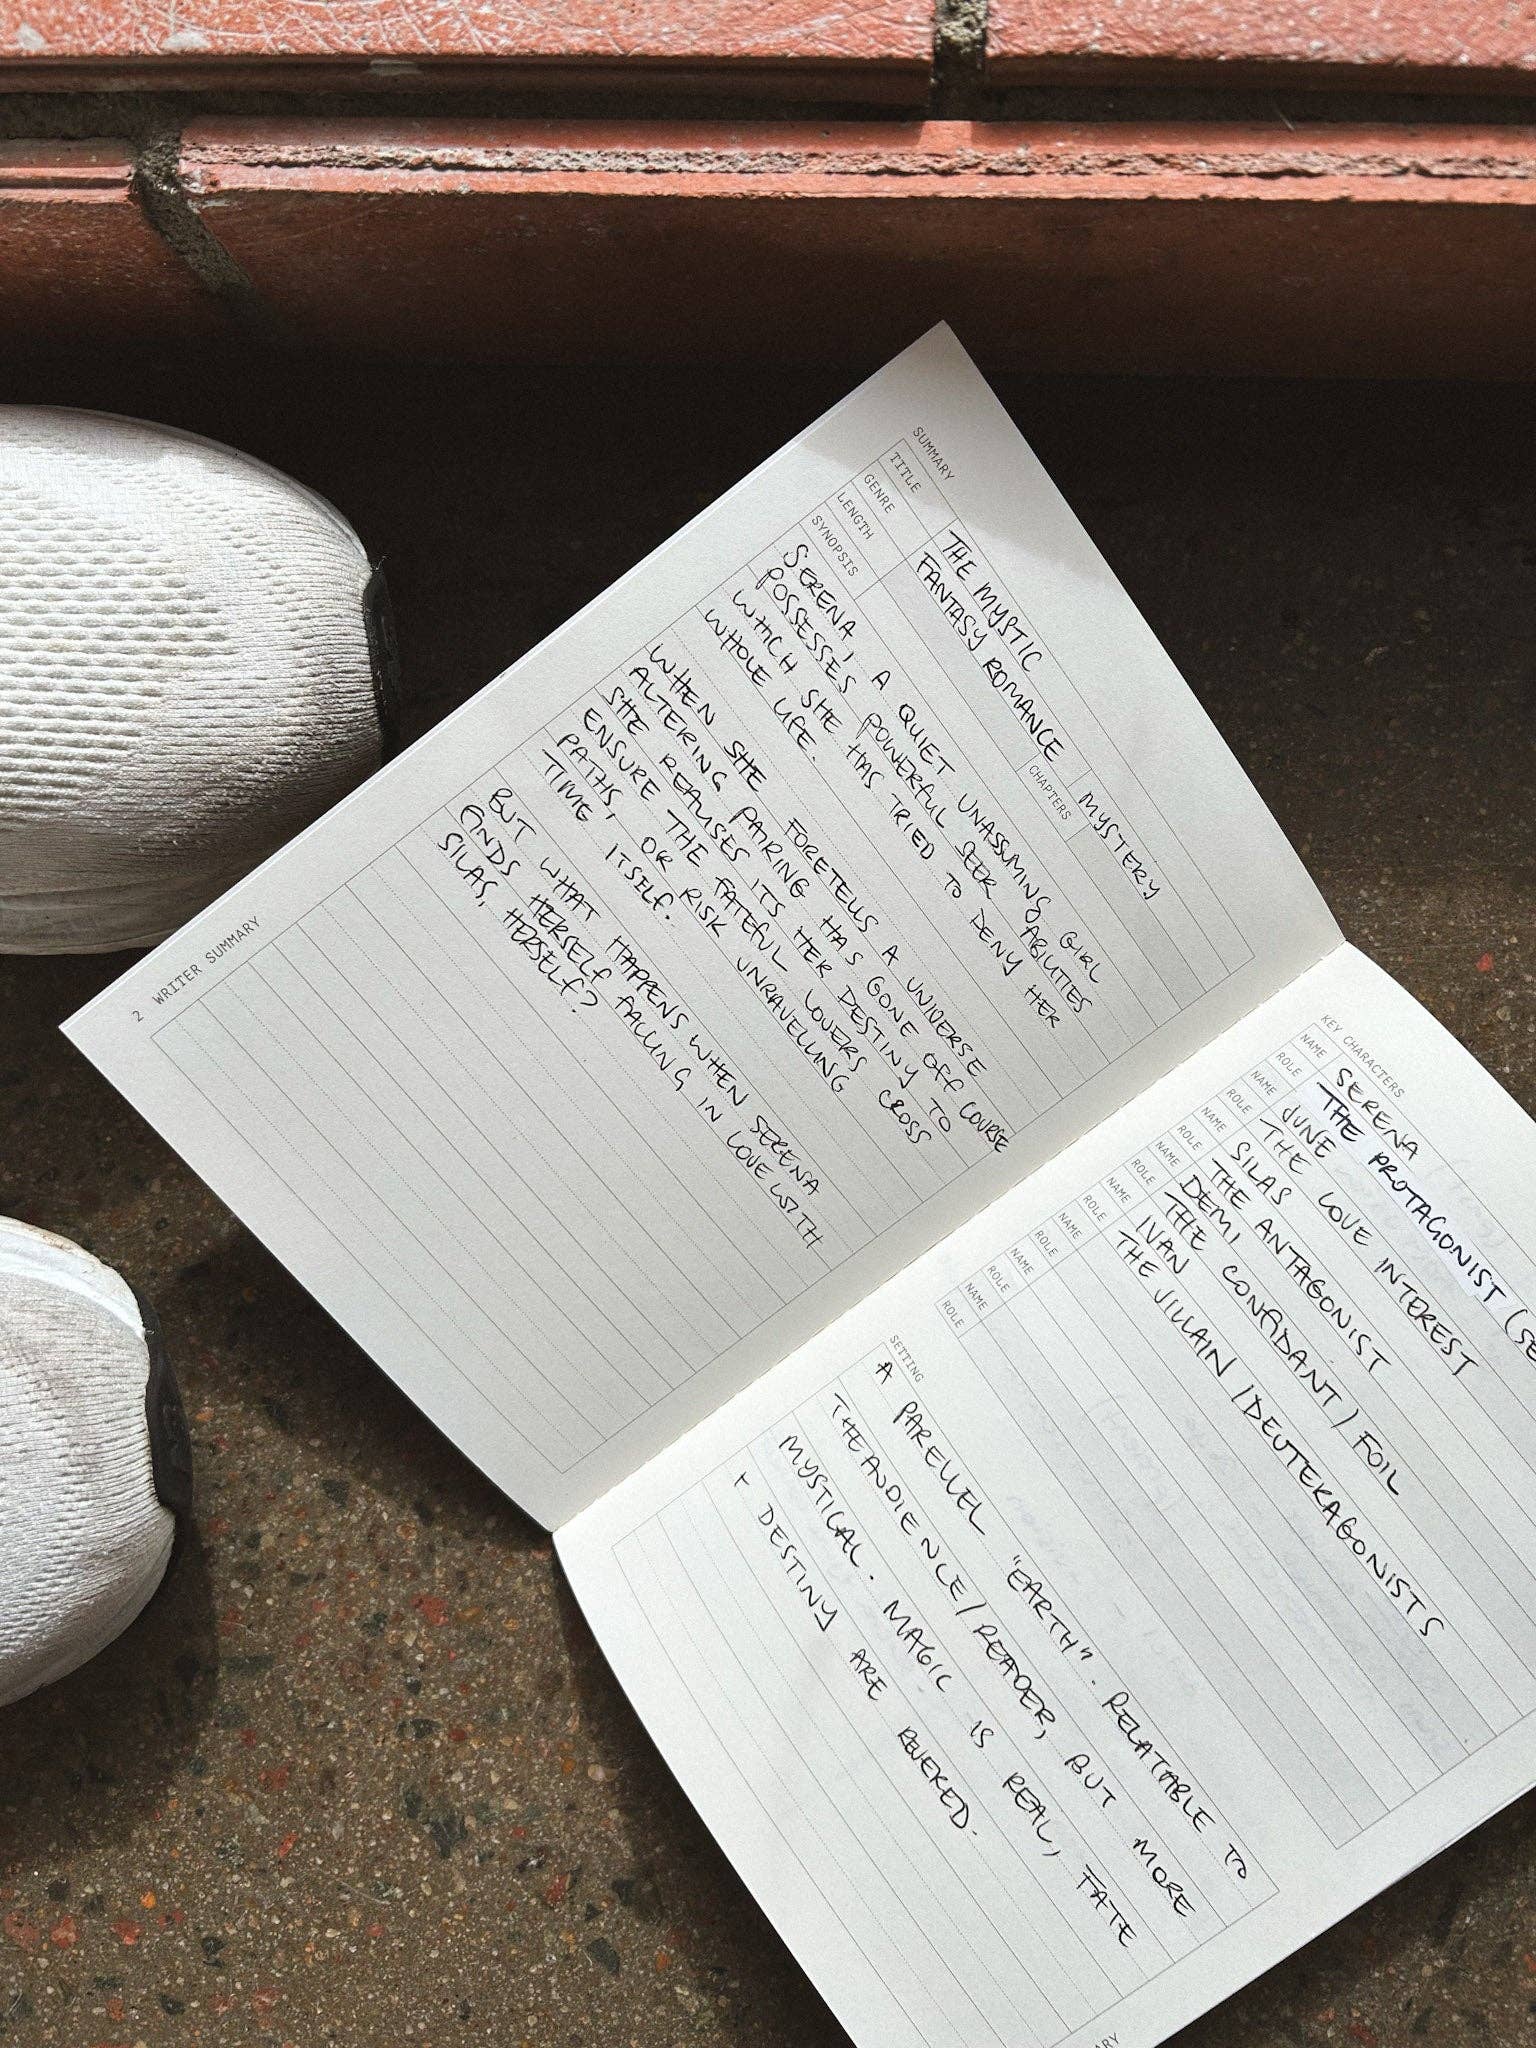 SUMMARY
TITLE THE MYSTIC
GENRE FANTASY ROMANCE MYSTERY
LENGTH CHAPTERS
SYNOPSIS
SERENA, A QUIET UNASSUMING GIRL
POSSESSES POWERFUL SEER ABILITIES
WHICH SHE HAS TRIED TO DENY HER
WHOLE LIFE.
WHEN SHE FORETELLS A UNIVERSE
ALTERING PAIRING HAS GONE OFF COURSE
SHE REALISES ITS HER DESTINY TO
ENSURE THE FATEFUL LOVERS CROSS
PATHS, OR RISK UNRAVELLING
TIME ITSELF.
BUT WHAT HAPPENS WHEN SERENA
FINDS HERSELF FALLING IN LOVE WITH
SILAS, HERSELF?
2 WRITER SUMMARY
KEY CHARACTERS
NAME SERENA
ROLE THE PROTAGONIST (SE
NAME JUNE
ROLE THE LOVE INTEREST
NAME SILAS
ROLE THE ANTAGONIST
NAME DEMI
ROLE THE CONFIDANT / FOIL
NAME IVAN
ROLE THE VILLAIN / DEUTERAGONISTS
NAME
ROLE
NAME
ROLE
NAME
ROLE
SETTING
A PARELLEL "EARTH". RELATABLE TO
THE AUDIENCE/READER, BUT MORE
MYSTICAL. MAGIC IS REAL, FATE
+ DESTINY ARE REVERED.
ARY